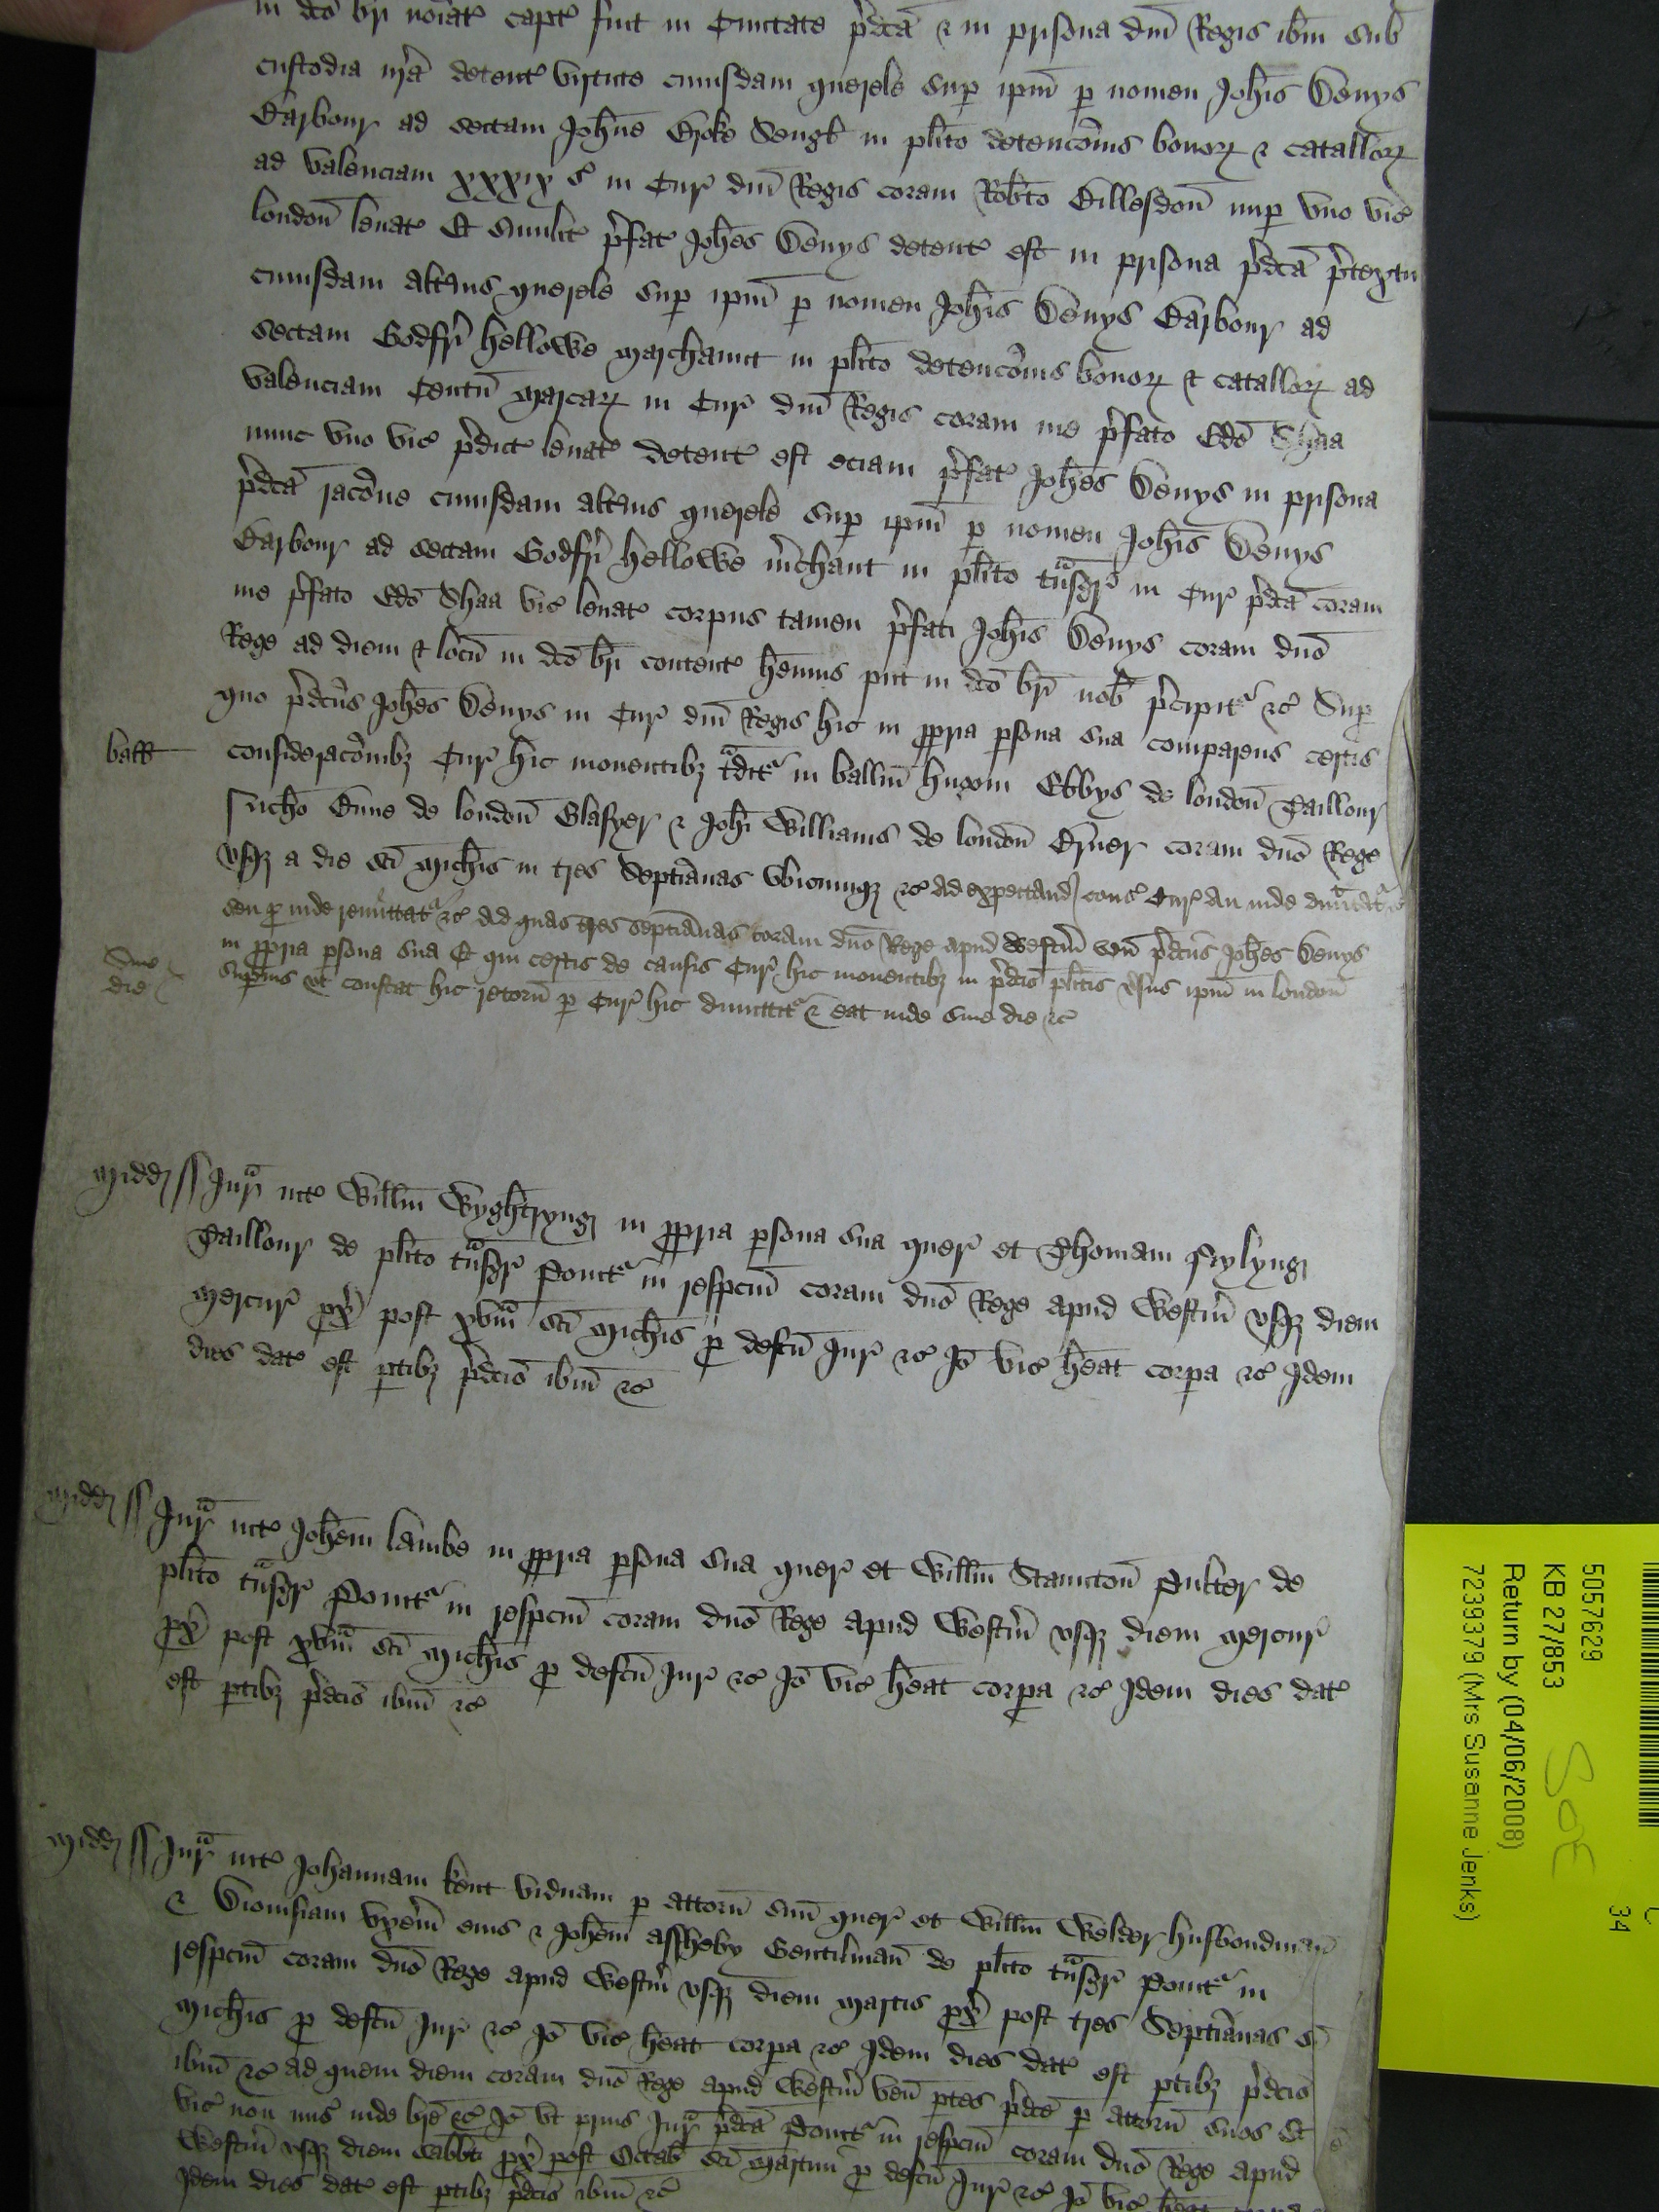 in dco bri noiat capt fuit in Civitate p̄dca & in prisona dni Regis ibm sub
custodia nra detent virtute cuiusdam querele sup ipm p nomen Johis Denys
Barbour ad sectam Johne Sengl in plito detencois bonoꝝ & catalloꝝ
ad valenciam xxxix s in Cur dni Regis coram Robto Tillesdon nup vno vic
london levat Et similit p̄fat Johes Denys detent est in prisona p̄dca p̄textu
cuiusdam alterius querele sup ipm p nomen Johis Denys Barbour ad
sectam Godfri hellowe marchaunt in plito detencois bonoꝝ & catalloꝝ ad
valenciam Centu marcaꝝ in Cur dni Regis coram me p̄fato Edo Shaa
nunc vno vic p̄dict levat detent est eciam p̄fat Johes Denys in prisona
p̄dca racone cuiusdam alterius querele sup ipm p nomen Johis Denys
Barbour ad sectam Godfri hellowe m̄chant in plito tnsgr in Cur p̄dca coram
me p̄fato Edo Shaa vic levat corpus tamen p̄fati Johis Denys coram dno
Rege ad diem & locu in dco bri content hemus put in dco bri nob p̄cipit &c Sup
quo p̄dcus Johes Denys in Cur dni Regis hic in ppria psona sua comparens certis
ball consideracoibꝫ Cur hic moventibꝫ tdit in ballm hugoni Ebbys de london Taillour
Richo Dune de london Glasyer & Johi Williams de london coram dno Rege
vsqꝫ a die sci Michis in tres Septianas vbicumqꝫ &c ad expectand cons Cur an inde dimitat
seu p inde remittat &c Ad quas tres septianas coram dno Rege apud Westm ven p̄dcus Johes Denys
in ppria psona sua Et qui certis de causis Cur hic moventibꝫ in p̄dcis plitis vsus ipm in london
Sine die supius vt constat hic retorn p Cur hic dimittit & eat inde sine die &c
Midd ss Jur int Willm Wyghtryng in ppria psona sua quer et Thomam Frylyng
Taillour de plito tnsgr Ponit in respcm coram dno Rege apud Westm vsqꝫ diem
Mercur px post xvam sci Michis p defcu Jur &c Jo vic heat corpa &c Jdem
dies dat est ptibꝫ p̄dcis ibm &c
Midd ss Jur int Johem Lambe in ppria psona sua quer et Willm Staunton de
plito tnsgr Ponit in respcm coram dno Rege apud Westm vsqꝫ diem Mercur
px post xvam sci Michis p defcu Jur &c Jo vic heat corpa &c Jdem dies dat
est ptibꝫ p̄dcis ibm &c
Midd ss Jur int Johannam Kent viduam p attorn suu quer et Willm Welder husbondman
& Dionisiam vxem eius & Johem Assheby Gentilman de plito tnsgr Ponit in
respcm coram dno Rege apud Westm vsqꝫ diem Martis px post tres Septianas
Michis p defcu Jur &c Jo vic heat corpa &c Jdem dies dat est ptibꝫ p̄dcis
ibm &c ad quem diem coram dno Rege apud Westm ven ptes p̄dce p attorn suos Et
vic non mis inde bre &c Jo vt prius Jur p̄dca Ponit in respcm coram dno Rege apud
Westm vsqꝫ diem Sabbti px post Octab sci Martini p defcu Jur &c Jo vic heat
Jdem dies dat est ptibꝫ p̄dcis ibm &c
5057629
KB 27/853
Return by (04/06/2008)
7239379 (Mrs Susanne Jenks)
34